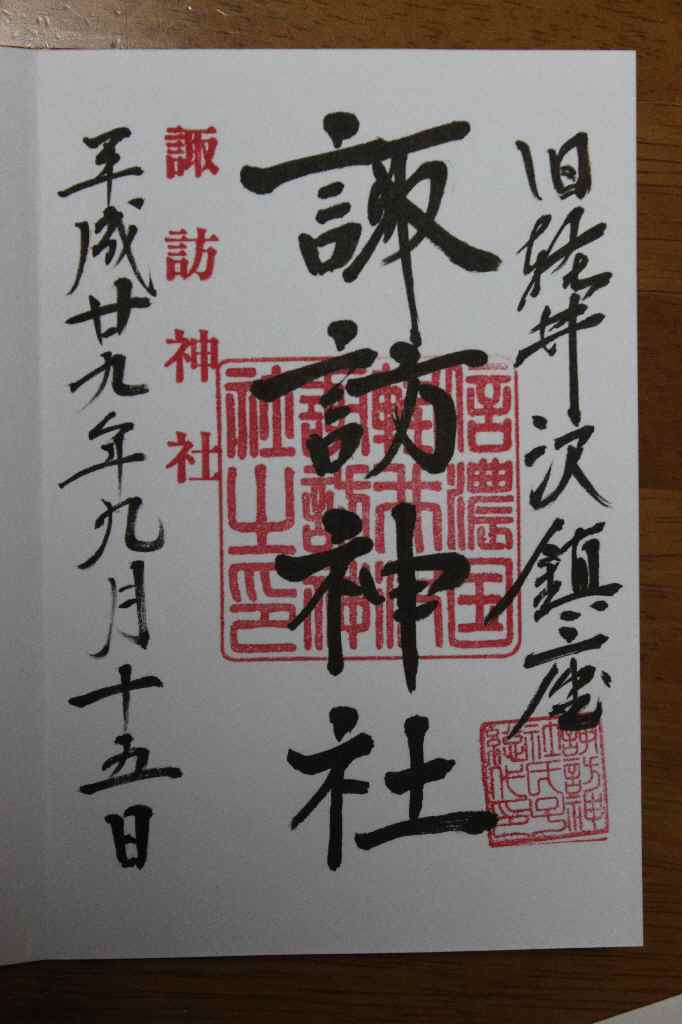 旧軽井沢鎮座
諏訪神社
諏訪神社
平成廿九年九月十五日
信濃国
軽井沢
諏訪神
社之印
諏訪神
社氏子
総代印